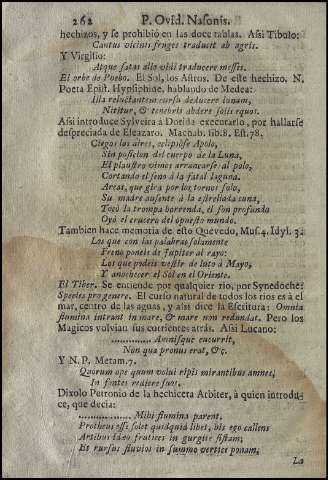 262 P. Ovid. Nasonis.
hechizos, y se prohibió en las doce tablas. Assi Tibulo:
Cantus vicinis fruges traducit ab agris.
Y Virgilio:
Atque satas alio vidi traducere messes.
El orbe de Poebo. El Sol, los Astros. De este hechizo. N.
Poeta Epist. Hypsiphide, hablando de Medea:
Illa reluctantem cursu deducere lunam,
Nititur, & tenebris abdere solis equos.
Assi introduce Sylveira à Dorida executarlo, por hallarse
despreciada de Eleazaro. Machab. lib.8. Est.78.
Ciegos los aires, eclipsòse Apolo,
Sin posicion del cuerpo de la Luna,
El plaustro vimos arrancarse al polo,
Cortando el seno à la fatal laguna.
Arcas, que gira por los tornos solo,
Su madre ausente à la estrellada cuna,
Tocò la trompa horrenda, el son profundo
Oyò el crucero del opuesto mundo.
Tambien hace memoria de esto Quevedo, Mus.4. Idyl. 3.
Los que con las palabras solamente
Freno poneis de Jupiter al rayo:
Los que podeis vestir de luto à Mayo,
Y anochecer el Sol en el Oriente.
El Tiber. Se entiende por qualquier rio, por Synedoche:
Species pro genere. El curso natural de todos los rios es à el
mar, centro de las aguas, y assi dice la Escritura: Omnia
flumina intrant in mare, & mare non redundat. Pero los
Magicos volvian sus corrientes atràs. Assi Lucano:
.............. Amnisque cucurrit,
Non qua pronus erat, &c.
Y N. P. Metam.7.
Quorum ope quum volui ripis mirantibus amnes,
In fontes rediere suos.
Dixolo Petronio de la hechicera Arbiter, à quien introdu-
ce, que decia:
.............. Mihi flumina parent.
Protheus esse solet quidquid libet, his ego callens
Artibus Idæo frutices in gurgite sistam;
Et rursus fluvios in summo vertice ponam,
Lo